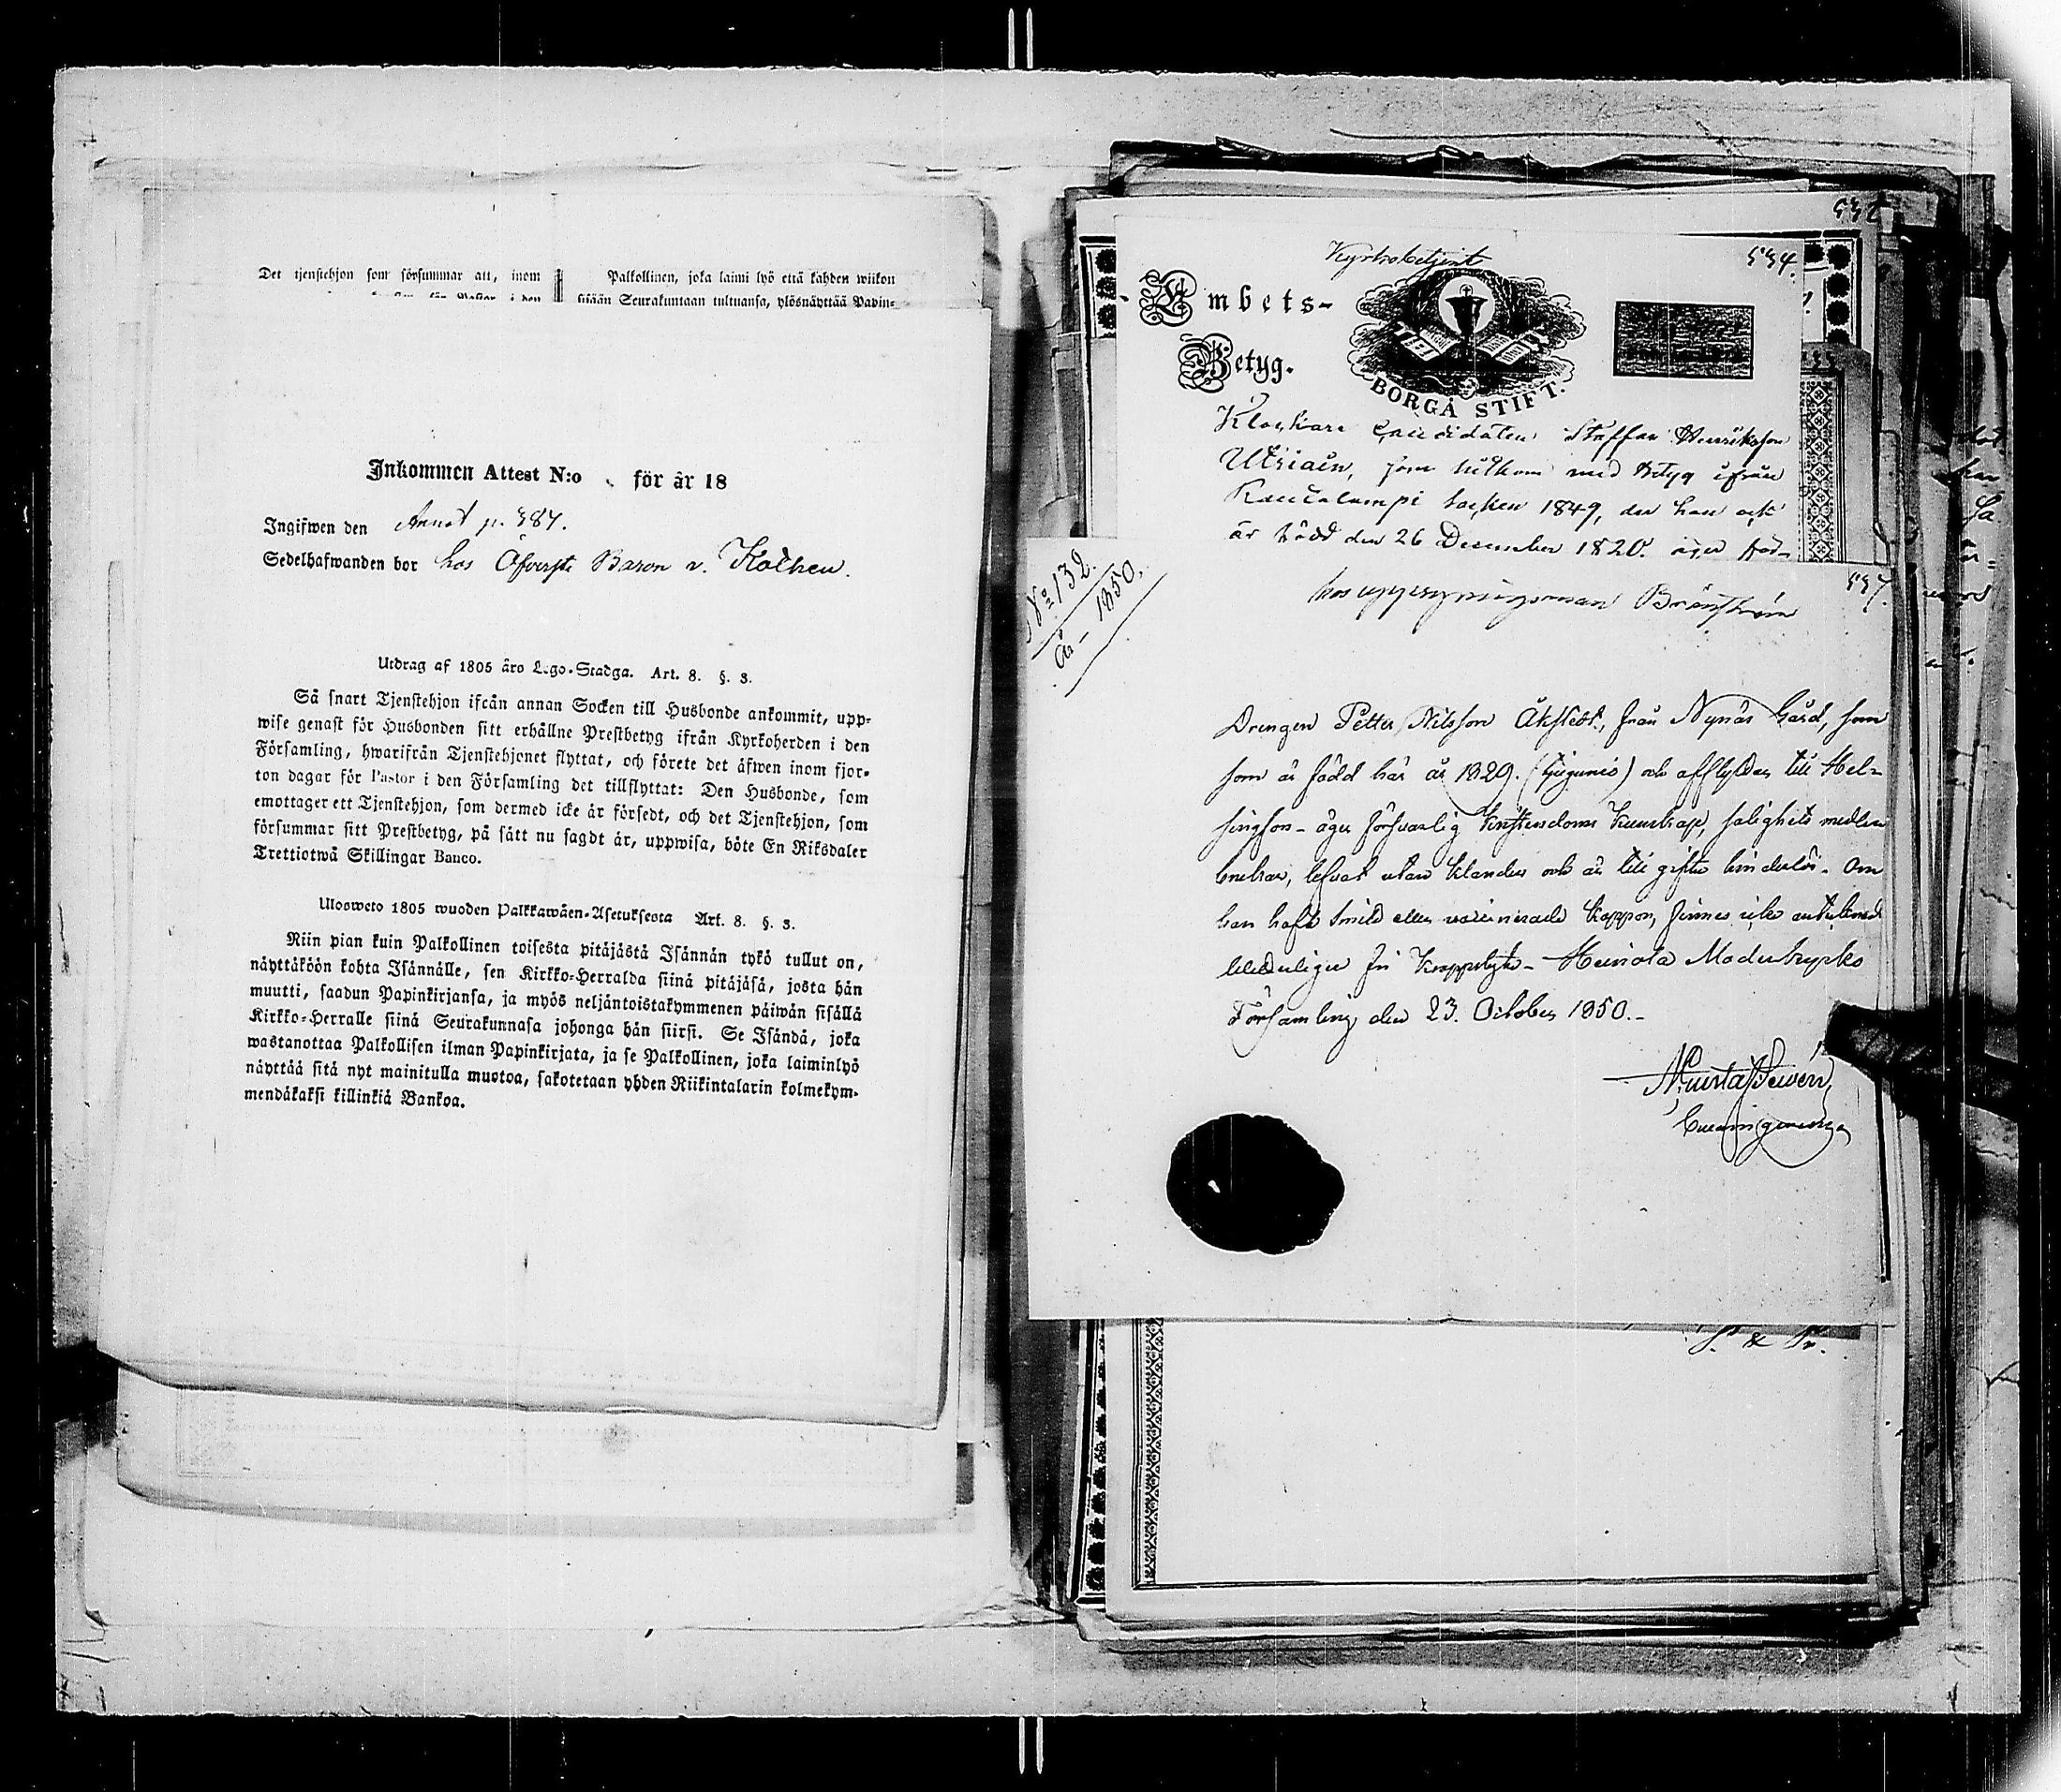 Det tjenstehjon som försummar att, inom
Palkollinen, joka laimi lyö että kahden wiikon
sisään Seurakuntaan tultuansa, ylösnäyttää Papin-
Inkommen Attest N:o för år 18
Ingifwen den Annot p. 387.
Sedelhafwanden bor hos Öfverste Baron v. Kothen.
Utdrag af 1805 års Lego-Stadga. Art. 8. §. 3.
Så snart Tjenstehjon ifrån annan Socken till Husbonde ankommit, upp-
wise genast för Husbonden sitt erhållne Prestbetyg ifrån Kyrkoherden i den
Församling, hwarifrån Tjenstehjonet flyttat, och förete det äfwen inom fjor-
ton dagar för Pastor i den Församling det tillflyttat: Den Husbonde, som
emottager ett Tjenstehjon, som dermed icke är försedt, och det Tjenstehjon, som
försummar sitt Prestbetyg, på sätt nu sagdt är, uppwisa, böte En Riksdaler
Trettiotwå Skillingar Banco.
Ulosweto 1805 wuoden Palkkawäen-Asetuksesta Art. 8. §. 3.
Niin pian kuin Palkollinen toisesta pitäjästä Isännän tykö tullut on,
näyttäköön kohta Isännälle, sen Kirkko-Herralda siinä pitäjäsä, josta hän
muutti, saadun Papinkirjansa, ja myös neljäntoistakymmenen päiwän sisällä
Kirkko-Herralle siinä Seurakunnasa johonga hän siirsi. Se Isändä, joka
wastanottaa Palkollisen ilman Papinkirjata, ja se Palkollinen, joka laiminlyö
näyttää sitä nyt mainitulla muotoa, sakotetaan yhden Riikintalarin kolmekym-
mendäkaksi killinkiä Bankoa.
Kyrkobetjent
534.
Embets-
Betyg.
BORGÅ STIFT.
Klockare Candidaten Staffan Henriksson
Utriain, som hitkom med betyg ifrån
Rautalampi socken 1849, der han ock
är född den 26 December 1820. äger för-
No 132.
År 1850.
537.
hos uppsyningsman Bränström
Drengen Petter Nilsson Åkstedt, från Nynäs Gård, som
som är född här år 1829. (tjugunio) och afflyttar till Hel-
singfors - äger försvarlig Kristendoms Kunskap, salighets medlen
brukar, lefvat utan klander och är till gifte hinderlös. Om
han haft smitto eller vaccinerade koppor, finnes icke antecknadt
Heinola Moderkyrko
Församling den 23. October 1850.-
S. & Sr.